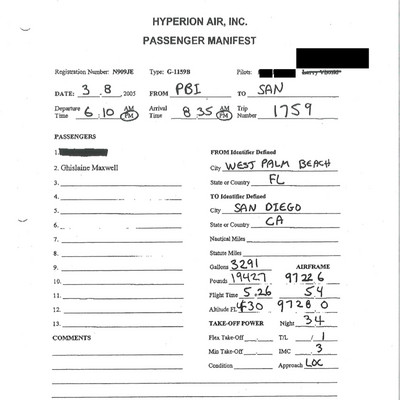 HYPERION AIR, INC.
PASSENGER MANIFEST
Registration Number: N909JE Type: G-1159B Pilots:
DATE: 3 8, 2005 FROM PBI TO SAN
Departure Time 6:10 AM PM Arrival Time 8:35 AM PM Trip Number 1759
PASSENGERS
FROM Identifier Defined
1.
City WEST PALM BEACH
2. Ghislaine Maxwell
State or Country FL
3.
TO Identifier Defined
4.
City SAN DIEGO
5.
State or Country CA
6.
Nautical Miles
7.
Statute Miles
8.
Gallons 3291 AIRFRAME
9.
Pounds 19427 9722 6
10.
Flight Time 5.26 5 4
11.
Altitude FL 430 9728 0
12.
TAKE-OFF POWER Night 3.4
13.
COMMENTS
Flex Take-Off T/L 1
Min Take-Off IMC .3
Condition Approach LOC